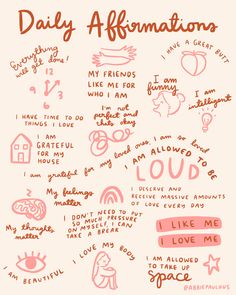 Daily Affirmations
Everything
will get done!
12
3
6
9
MY FRIENDS
LIKE ME FOR
WHO I AM
I HAVE A GREAT BUTT
I am
funny
I am
intelligent
I'm not
perfect and
thats okay
I HAVE TIME TO DO
THINGS I LOVE
I AM
GRATEFUL
FOR MY
HOUSE
I am grateful for my loved ones, I am so loved
I AM ALLOWED TO BE
LOUD
My feelings
matter
I DESERVE AND
RECEIVE MASSIVE AMOUNTS
OF LOVE EVERY DAY
I DON'T NEED TO PUT
SO MUCH PRESSURE
ON MYSELF, I CAN
TAKE A BREAK
My thoughts
matter
I LIKE ME
I LOVE ME
I LOVE MY BODY
I AM BEAUTIFUL
I AM ALLOWED
TO TAKE UP
space